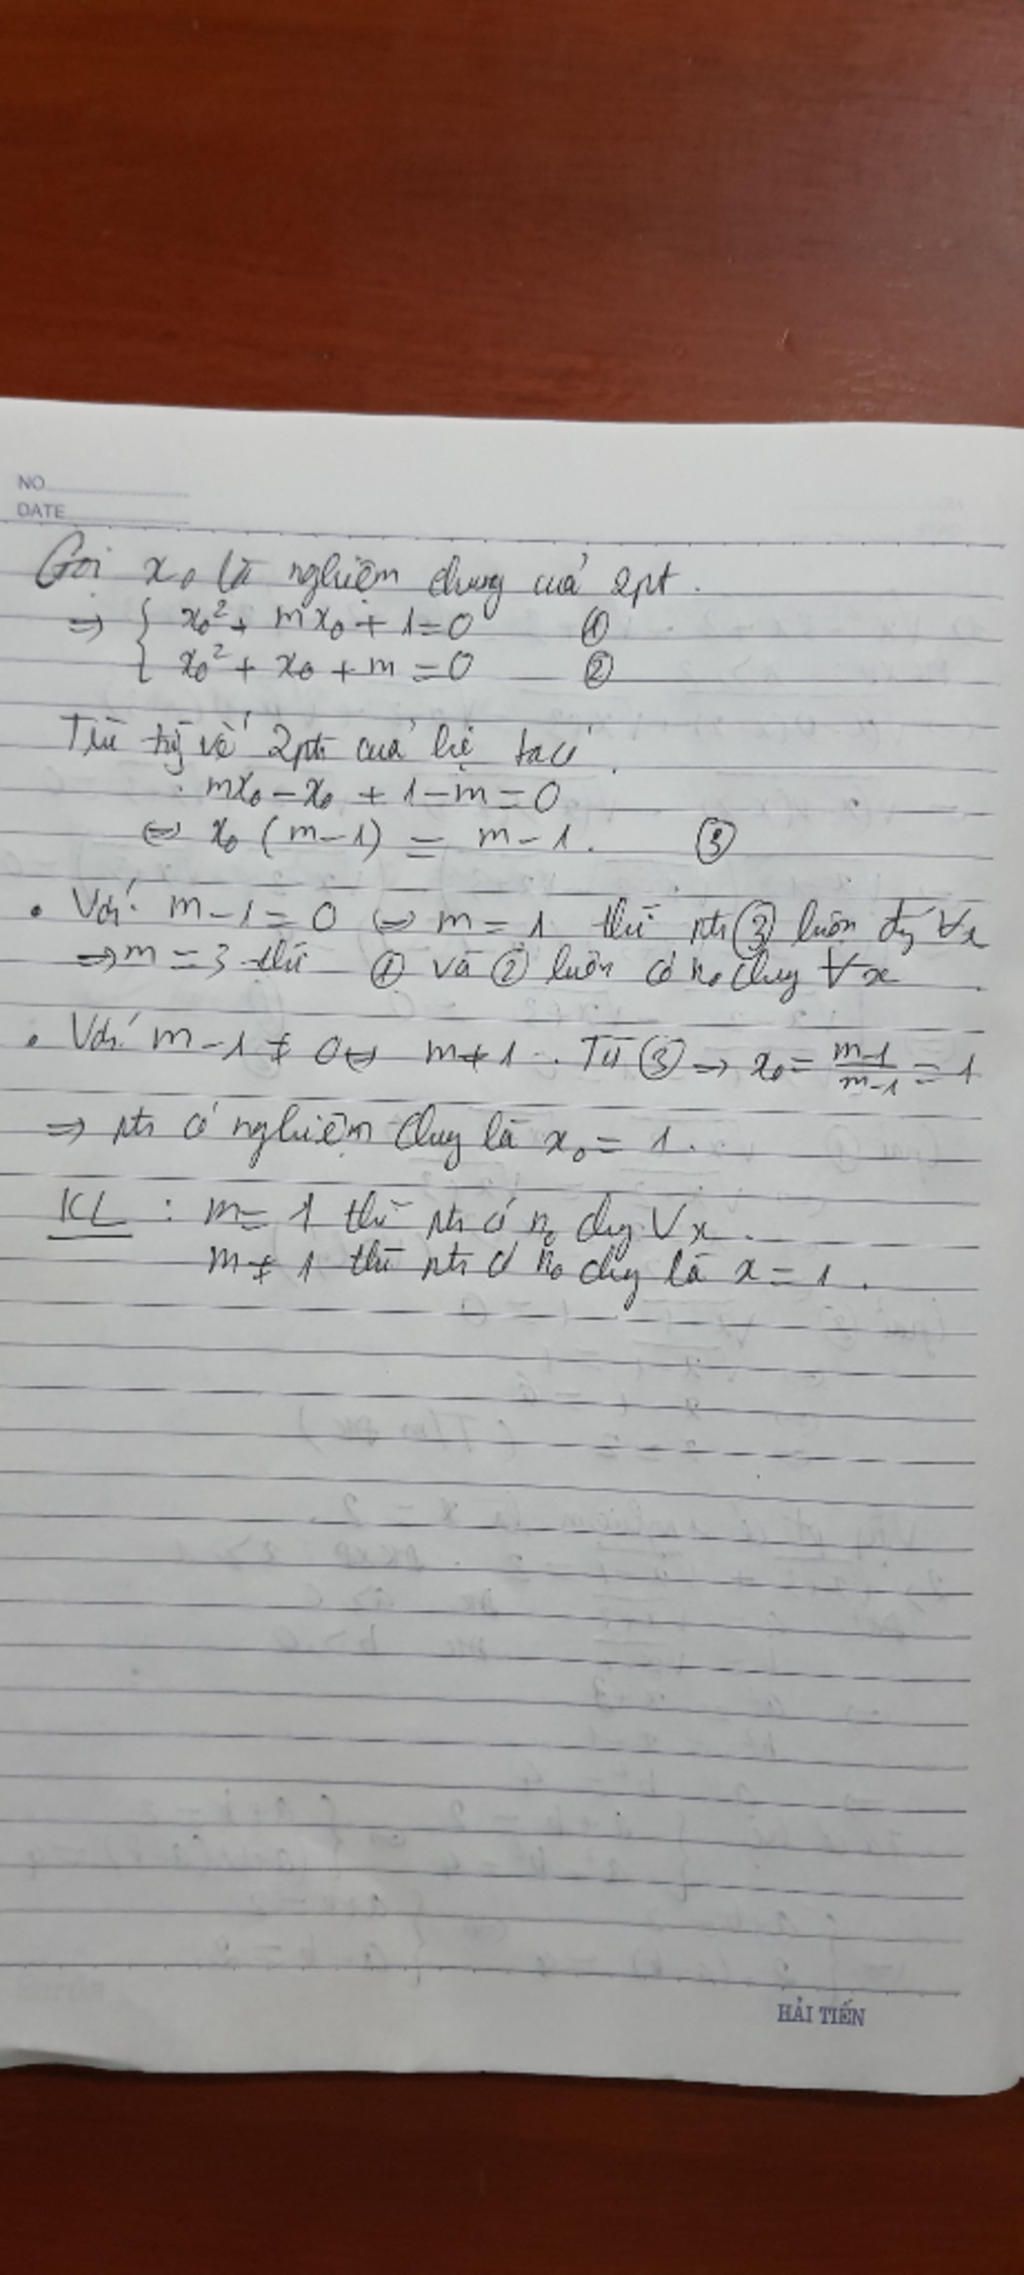 NO
DATE
Gọi x₀ là nghiệm chung cuả 2pt.
⇒ { x₀² + mx₀ + 1 = 0 ①
x₀² + x₀ + m = 0 ②
Trừ từg vế 2pt cuả hệ ta có
mx₀ - x₀ + 1 - m = 0
⇔ x₀ (m - 1) = m - 1. ③
• Với m - 1 = 0 ⇔ m = 1 thì pt ③ luôn đg ∀x
⇒ m = 3 thì ① và ② luôn có n₀ chug ∀x
• Với m - 1 ≠ 0 ⇔ m ≠ 1. Từ ③ ⇒ x₀ = \frac{m-1}{m-1} = 1
⇒ pt có nghiệm chug là x₀ = 1.
KL : m = 1 thì pt có n₀ chug ∀x.
m ≠ 1 thì pt có n₀ chug là x = 1.
HẢI TIẾN